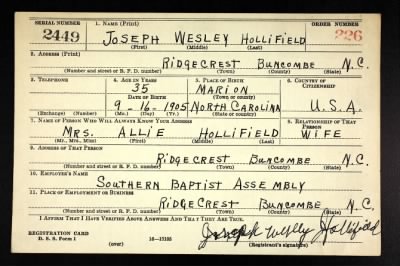 SERIAL NUMBER 1. NAME (Print) ORDER NUMBER
2449 JOSEPH WESLEY HOLLIFIELD 226
(First) (Middle) (Last)
2. ADDRESS (Print)
RIDGECREST BUNCOMBE N.C.
(Number and street or R. F. D. number) (Town) (County) (State)
3. TELEPHONE 4. AGE IN YEARS 5. PLACE OF BIRTH 6. COUNTRY OF CITIZENSHIP
35 MARION
DATE OF BIRTH (Town or county)
9-16-1905 NORTH CAROLINA U.S.A.
(Exchange) (Number) (Mo.) (Day) (Yr.) (State or country)
7. NAME OF PERSON WHO WILL ALWAYS KNOW YOUR ADDRESS 8. RELATIONSHIP OF THAT PERSON
MRS. ALLIE HOLLIFIELD WIFE
(Mr., Mrs., Miss) (First) (Middle) (Last)
9. ADDRESS OF THAT PERSON
RIDGECREST BUNCOMBE N.C.
(Number and street or R. F. D. number) (Town) (County) (State)
10. EMPLOYER'S NAME
SOUTHERN BAPTIST ASSEMBLY
11. PLACE OF EMPLOYMENT OR BUSINESS
RIDGECREST BUNCOMBE N.C.
(Number and street or R. F. D. number) (Town) (County) (State)
I AFFIRM THAT I HAVE VERIFIED ABOVE ANSWERS AND THAT THEY ARE TRUE.
REGISTRATION CARD Joseph Wesley Hollifield
D. S. S. Form 1 (over) 16-17105 (Registrant's signature)